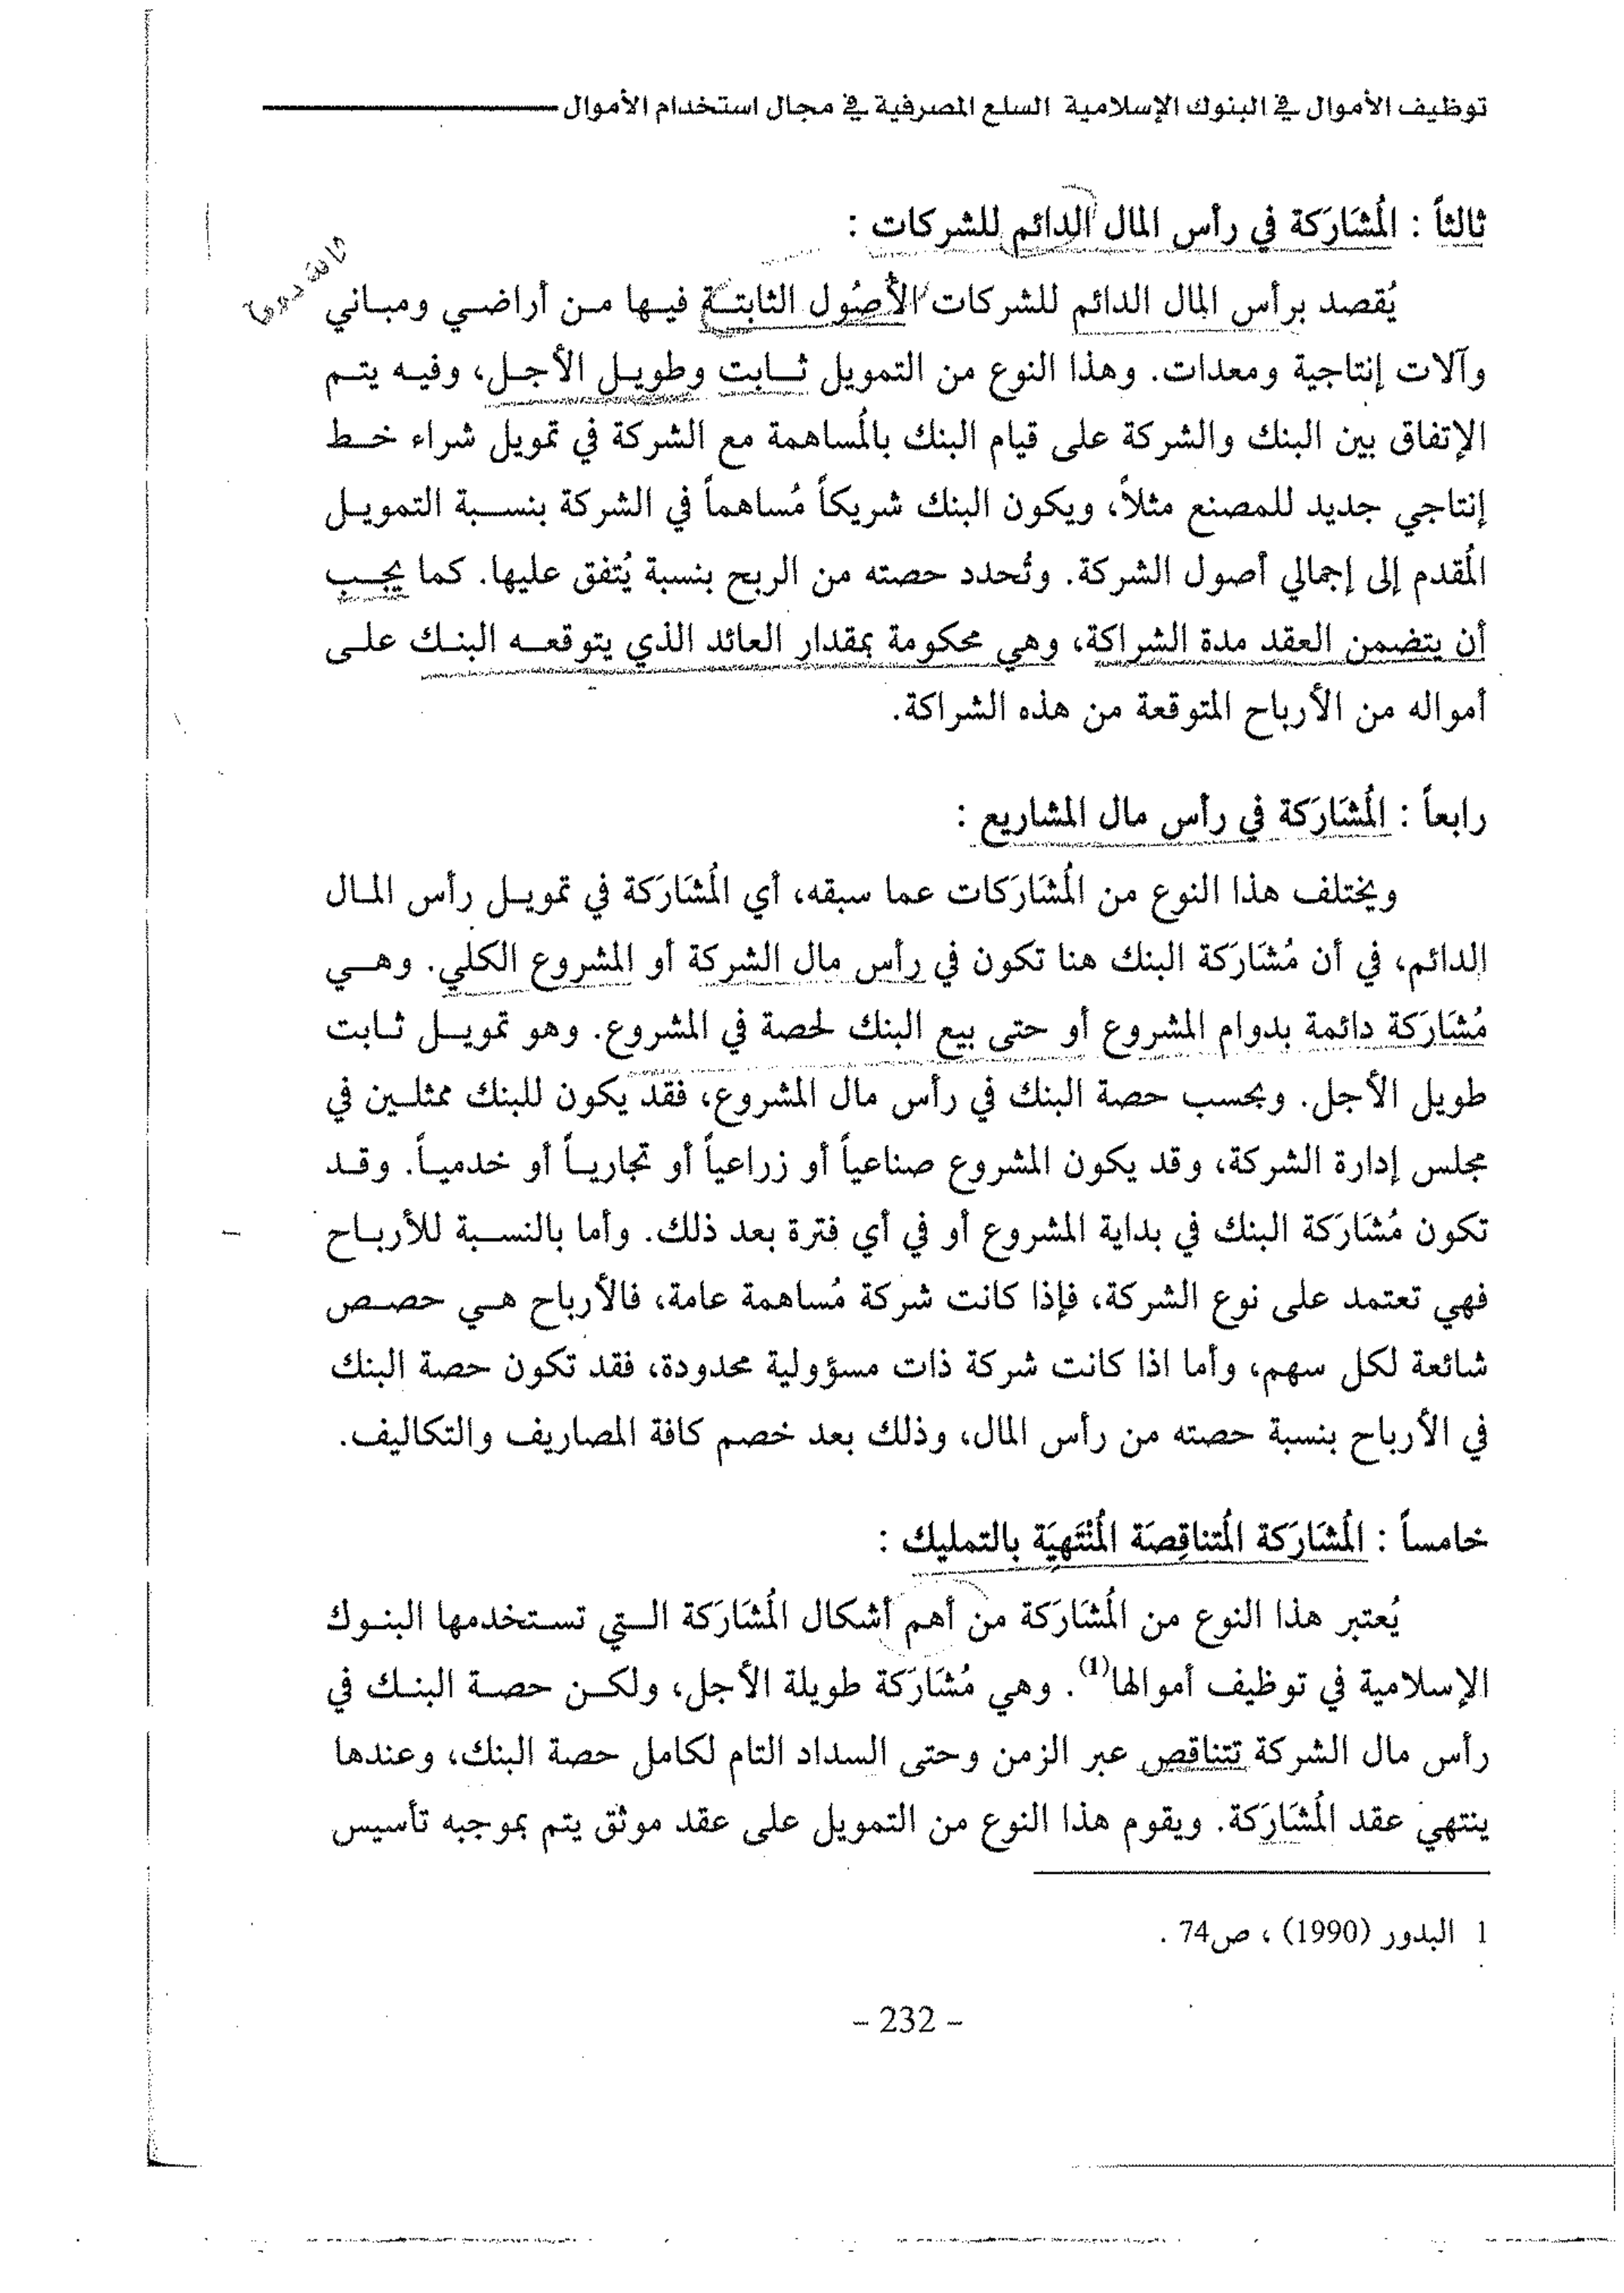 توظيف الأموال في البنوك الإسلامية السلع المصرفية في مجال استخدام الأموال
ثالثاً : المُشَارَكة في رأس المال الدائم للشركات :
يُقصد برأس المال الدائم للشركات الأصُول الثابتة فيها من أراضي ومباني
وآلات إنتاجية ومعدات. وهذا النوع من التمويل ثابت وطويل الأجل، وفيه يتم
الإتفاق بين البنك والشركة على قيام البنك بالمُساهمة مع الشركة في تمويل شراء خط
إنتاجي جديد للمصنع مثلاً، ويكون البنك شريكاً مُساهماً في الشركة بنسبة التمويل
المُقدم إلى إجمالي أصول الشركة. وتُحدد حصته من الربح بنسبة يُتفق عليها. كما يجب
أن يتضمن العقد مدة الشراكة، وهي محكومة بمقدار العائد الذي يتوقعه البنك على
أمواله من الأرباح المتوقعة من هذه الشراكة.
رابعاً : المُشَارَكة في رأس مال المشاريع :
ويختلف هذا النوع من المُشَارَكات عما سبقه، أي المُشَارَكة في تمويل رأس المال
الدائم، في أن مُشَارَكة البنك هنا تكون في رأس مال الشركة أو المشروع الكلي. وهي
مُشَارَكة دائمة بدوام المشروع أو حتى بيع البنك لحصة في المشروع. وهو تمويل ثابت
طويل الأجل. وبحسب حصة البنك في رأس مال المشروع، فقد يكون للبنك ممثلين في
مجلس إدارة الشركة، وقد يكون المشروع صناعياً أو زراعياً أو تجارياً أو خدمياً. وقد
تكون مُشَارَكة البنك في بداية المشروع أو في أي فترة بعد ذلك. وأما بالنسبة للأرباح
فهي تعتمد على نوع الشركة، فإذا كانت شركة مُساهمة عامة، فالأرباح هي حصص
شائعة لكل سهم، وأما اذا كانت شركة ذات مسؤولية محدودة، فقد تكون حصة البنك
في الأرباح بنسبة حصته من رأس المال، وذلك بعد خصم كافة المصاريف والتكاليف.
خامساً : المُشَارَكة المُتناقِصَة المُنْتَهِيَة بالتمليك :
يُعتبر هذا النوع من المُشَارَكة من أهم أشكال المُشَارَكة التي تستخدمها البنوك
الإسلامية في توظيف أموالها(1). وهي مُشَارَكة طويلة الأجل، ولكن حصة البنك في
رأس مال الشركة تتناقص عبر الزمن وحتى السداد التام لكامل حصة البنك، وعندها
ينتهي عقد المُشَارَكة. ويقوم هذا النوع من التمويل على عقد موثق يتم بموجبه تأسيس
1 البدور (1990) ، ص74 .
- 232 -